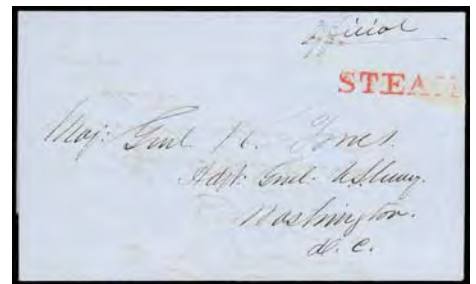 Official
STEAM
Maj: Genl. R. Jones.
Adjt. Genl. U.S. Army.
Washington.
D. C.